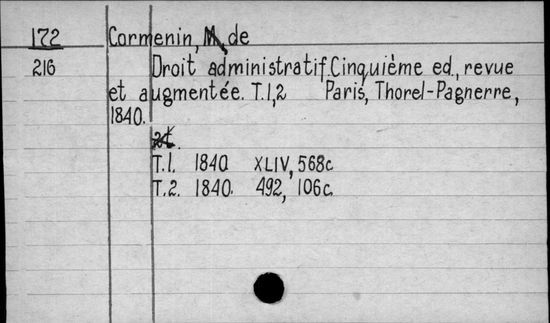 172 Cormenin, M, de
216 Droit administratif. Cinquième ed., revue
et augmentée. T.1,2 Paris, Thorel-Pagnerre,
1840.
2t.
T.1. 1840 XLIV, 568c
T.2. 1840. 492, 106c.